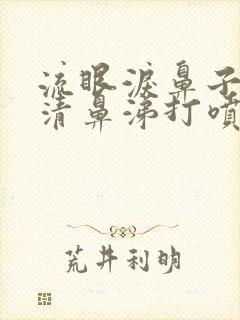 流眼淚鼻子
清鼻涕打噴
荒井利明